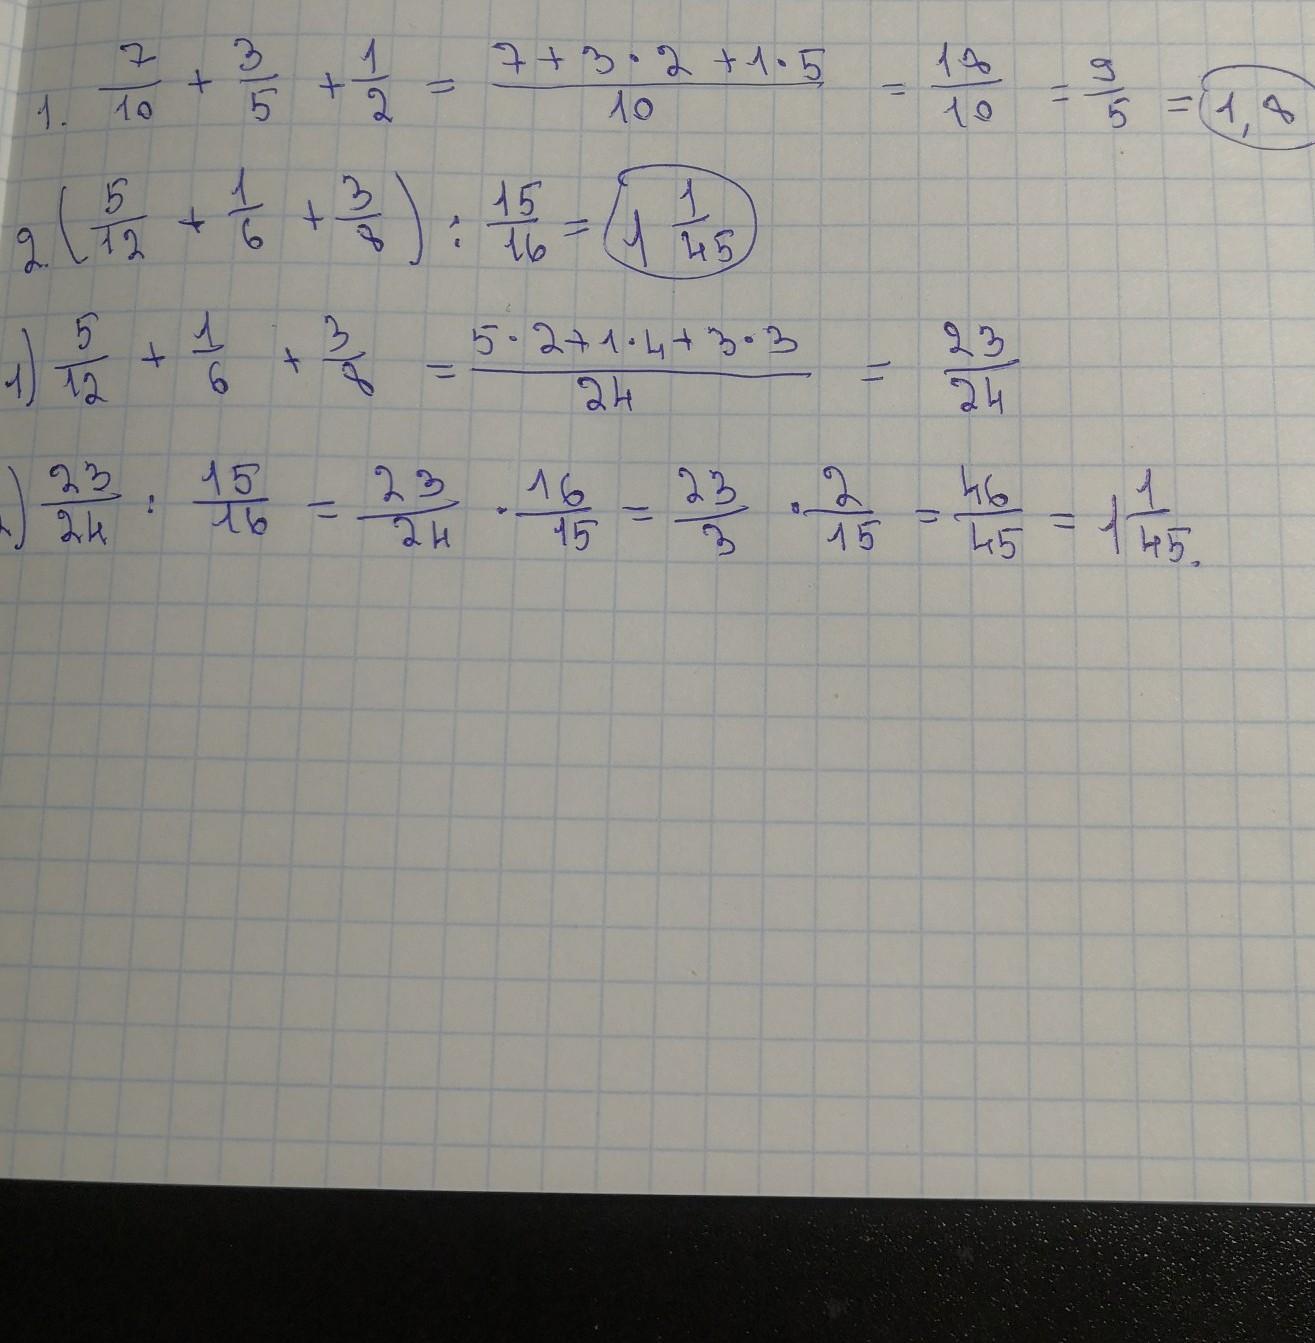 1. 7/10 + 3/5 + 1/2 = (7+3·2+1·5)/10 = 18/10 = 9/5 = 1,8
2. (5/12 + 1/6 + 3/8) : 15/16 = 1 1/45
1) 5/12 + 1/6 + 3/8 = (5·2+1·4+3·3)/24 = 23/24
2) 23/24 : 15/16 = 23/24 · 16/15 = 23/3 · 2/15 = 46/45 = 1 1/45.